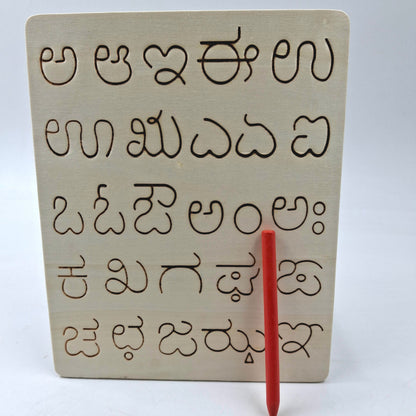 ಅ ಆ ಇ ಈ ಉ
ಊ ಋ ಎ ಏ ಐ
ಒ ಓ ಔ ಅಂ ಅಃ
ಕ ಖ ಗ ಘ
ಚ ಛ ಜ ಝ